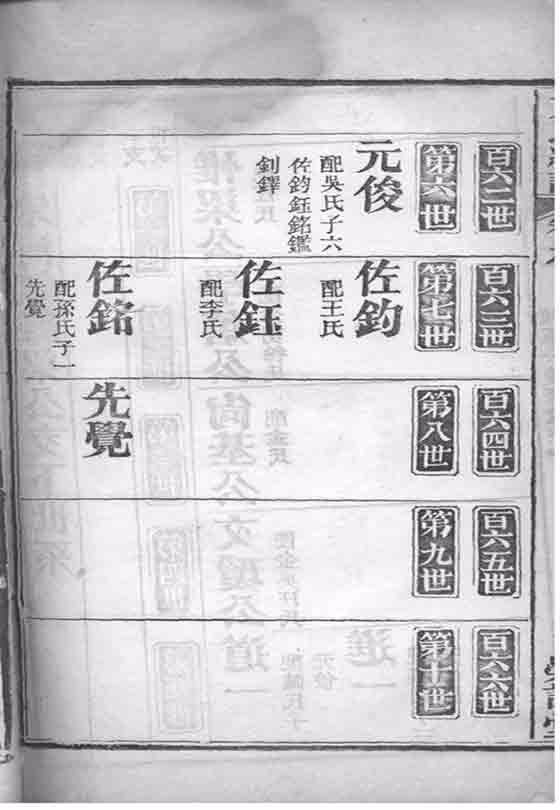 百六二世
第六世
元俊
配吳氏子六
佐鈞鈺銘鑑
釗鐸
百六三世
第七世
佐鈞
配王氏
佐鈺
配李氏
佐銘
配孫氏子一
先覺
百六四世
第八世
先覺
百六五世
第九世
百六六世
第十世